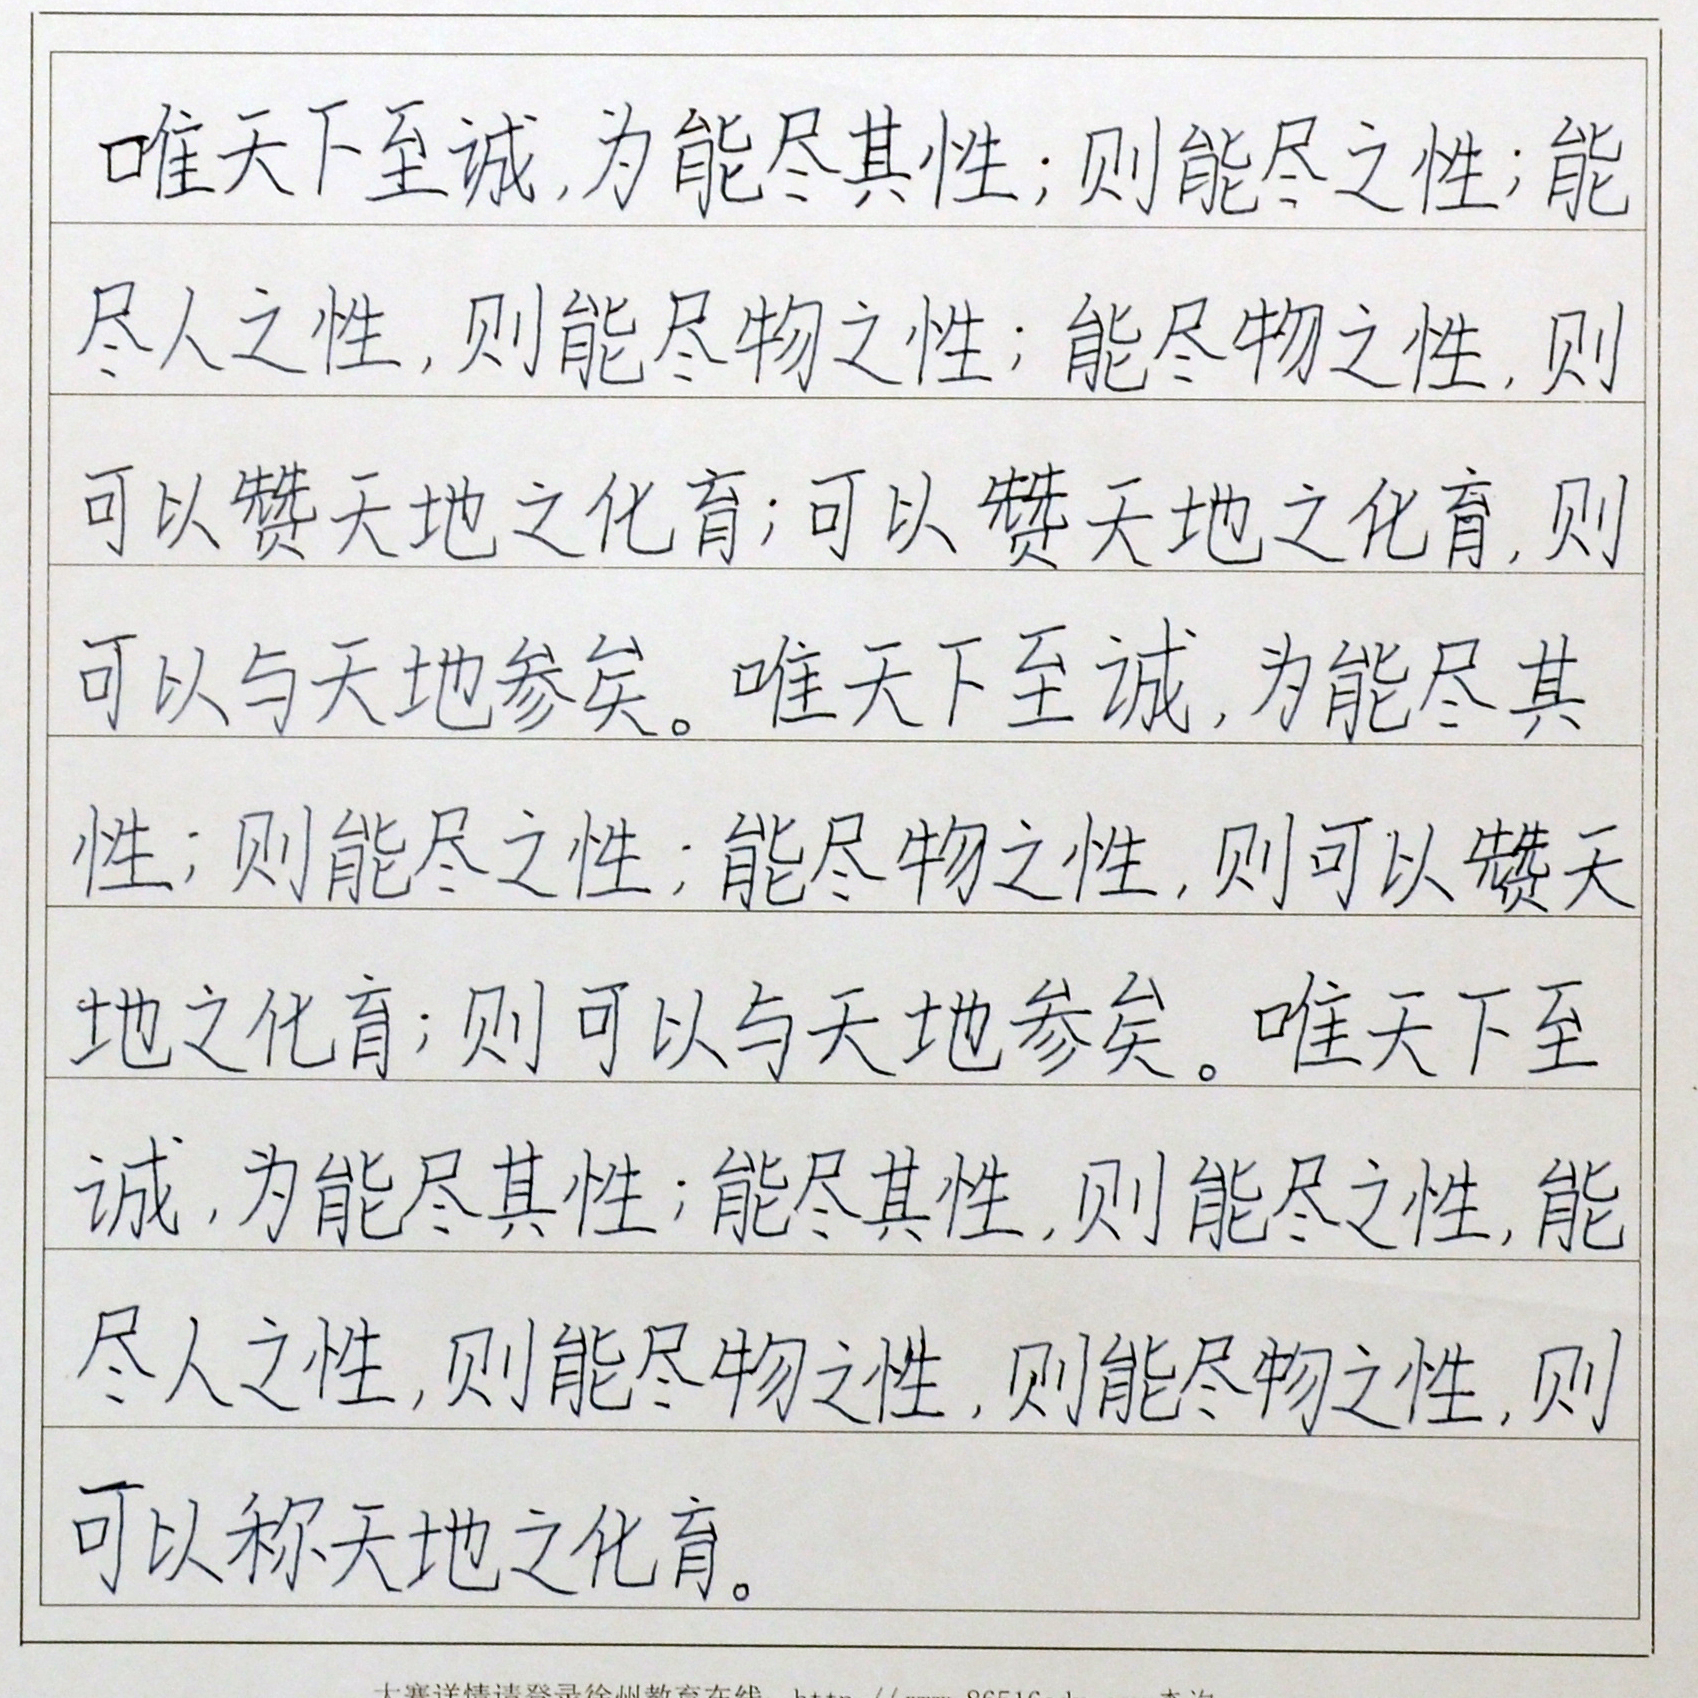 唯天下至诚,为能尽其性;则能尽之性;能
尽人之性,则能尽物之性;能尽物之性,则
可以赞天地之化育;可以赞天地之化育,则
可以与天地参矣。唯天下至诚,为能尽其
性;则能尽之性;能尽物之性,则可以赞天
地之化育;则可以与天地参矣。唯天下至
诚,为能尽其性;能尽其性,则能尽之性,能
尽人之性,则能尽物之性,则能尽物之性,则
可以称天地之化育。
大赛详情请登录徐州教育在线